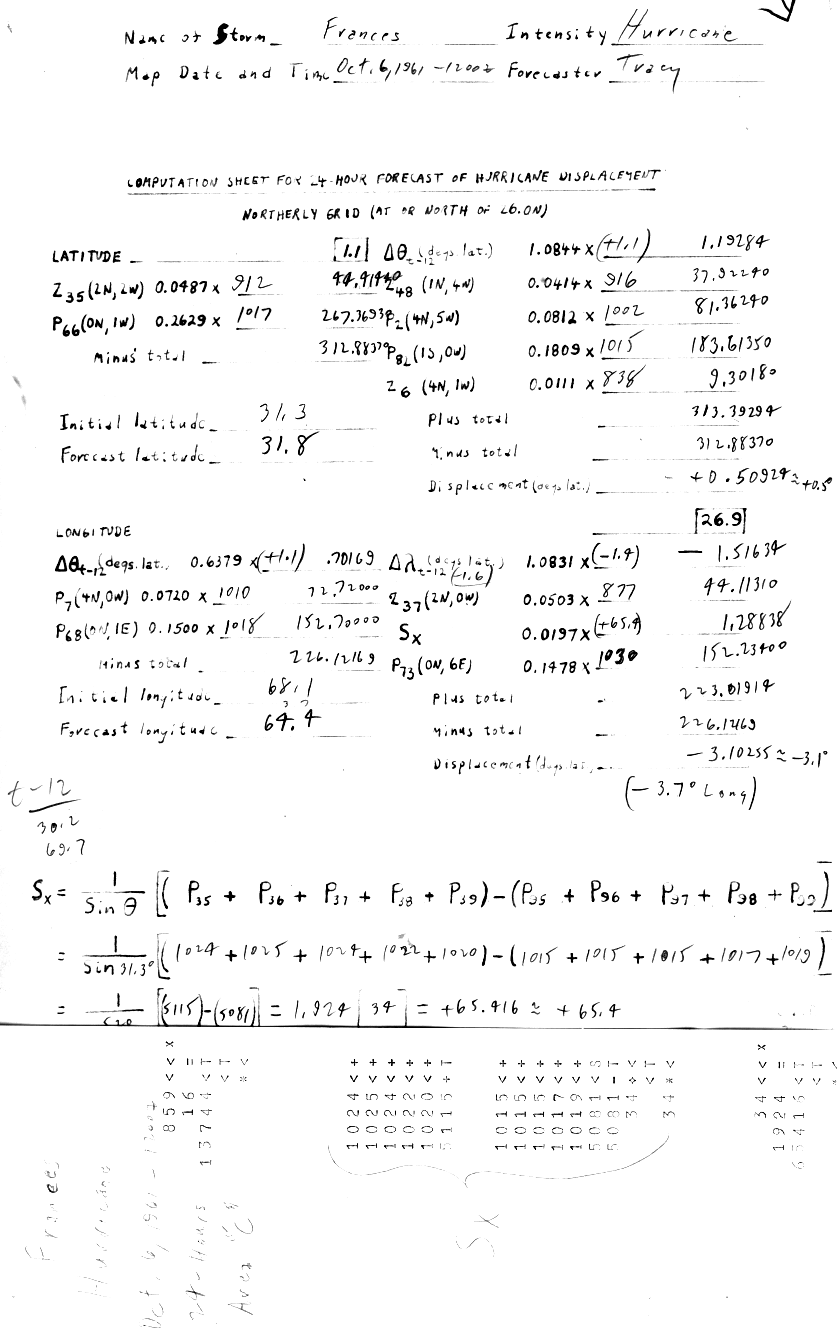 Name of Storm Frances Intensity Hurricane
Map Date and Time Oct. 6, 1961 - 1200z Forecaster Tracy
COMPUTATION SHEET FOR 24-HOUR FORECAST OF HURRICANE DISPLACEMENT
NORTHERLY GRID (AT OR NORTH OF 26.0N)
LATITUDE [1.1] Δθt-12 (degs. lat.) 1.0844 x (+1.1) 1.19284
Z35 (2N, 2W) 0.0487 x 912 44.91440 Z48 (1N, 4W) 0.0414 x 916 37.92240
P66 (0N, 1W) 0.2629 x 1017 267.36930 P2 (4N, 5W) 0.0812 x 1002 81.36240
Minus total 312.88370 P82 (1S, 0W) 0.1809 x 1015 183.61350
Z6 (4N, 1W) 0.0111 x 838 9.30180
Initial latitude 31.3 Plus total 313.39294
Forecast latitude 31.8 Minus total 312.88370
Displacement (degs. lat.) +0.50924 ≈ +0.5°
LONGITUDE [26.9]
Δθt-12 (degs. lat.) 0.6379 x (+1.1) .70169 Δλt-12 (degs. lat.) (-1.6) 1.0831 x (-1.4) — 1.51634
P7 (4N, 0W) 0.0720 x 1010 72.72000 Z37 (2N, 0W) 0.0503 x 877 44.11310
P68 (0N, 1E) 0.1500 x 1018 152.70000 Sx 0.0197 x (+65.4) 1.28838
Minus total 226.12169 P73 (0N, 6E) 0.1478 x 1030 152.23400
Initial longitude 68.1 Plus total 223.01914
Forecast longitude 64.4 Minus total 226.12169
Displacement (degs. lat.) - 3.10255 ≈ -3.1°
(- 3.7° Long)
t-12
30.2
69.7
Sx = 1/Sin θ [(P35 + P36 + P37 + P38 + P39) - (P95 + P96 + P97 + P98 + P99)]
= 1/Sin 31.3° [(1024 + 1025 + 1024 + 1022 + 1020) - (1015 + 1015 + 1015 + 1017 + 1019)]
= 1/.520 [(5115) - (5081)] = 1.924 [34] = +65.416 ≈ +65.4
Frances
Hurricane
Oct. 6, 1961 - 1200z
24-Hours
Area "C"
859 < < X
16 V =
13744 < T
V T
* V
1024 V +
1025 V +
1024 V +
1022 V +
1020 V +
5115 + T
1015 V +
1015 V +
1015 V +
1017 V +
1019 V +
5081 < S
5081 - T
34 + V
V T
34 * V
Sx
34 < < X
1924 V =
65416 < T
V T
* V